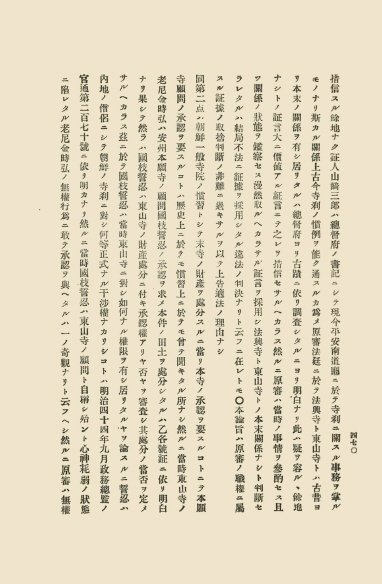 四七〇
措信スル餘地ナク証人山﨑三郞ハ總督府ノ書記ニシテ現今平安南道廳ニ於テ寺刹ニ關スル事務ヲ掌ル
モノナリ斯カル關係上古今寺刹ノ慣例ヲ能ク通スルカ爲メ原審法廷ニ於テ法興寺ト東山寺トハ古昔ヨ
リ本末ノ關係ヲ有シ居リタルハ總督府ヨリ古蹟ニ依リ調査シタルニヨリ明白ナリ此ハ疑ヲ容ル、餘地
ナシトノ証言大ニ價値アル証言ニテ之レヲ措信セサルヘカラス然ルニ原審ハ當時ノ事情ヲ參酌セス且
ツ關係ノ狀態ヲ鑑察セス漫然取ルヘカラサル証言ヲ採用シ法興寺ト東山寺トノ本末關係ナシト判斷セ
ラレタルハ結局不法ニ証據ヲ採用シタル違法ノ判決ナリト云フニ在レトモ〇本論旨ハ原審ノ職權ニ屬
スル証據ノ取捨判斷ノ非難ニ過キサルヲ以テ上告適法ノ理由ナシ
同第二点ハ朝鮮一般寺院ノ慣習トシテ末寺ノ財產ヲ處分スルニ當リ本寺ノ承認ヲ要スルコトニテ本願
寺顧問ノ承認ヲ要スルコトハ歷史上ニ於テモ慣習上ニ於テモ曾テ聞キタル所ナシ然ルニ當時東山寺ノ
老尼金時弘ハ安州本願寺ノ顧問國枝誓忍ニ承認ヲ求メ本件ノ田土ヲ處分シタルハ乙各號証ニ依リ明白
ナリ果シテ然ラハ國枝誓忍ハ東山寺ノ財產處分ニ付キ承認權アリヤ否ヤヲ審査シ其處分ノ當否ヲ定メ
サルヘカラス茲ニ於テ國枝誓忍ハ當時東山寺ニ對シ如何ナル權限ヲ有シ居リタルヤヲ論スルニ誓忍ハ
內地ノ僧侶ニシテ朝鮮ノ寺刹ニ對シ何等正式ナル干涉權ナカリシコトハ明治四十四年九月政務總監ノ
官通第二百七十號ニ依リ明カナリ然ルニ當時國枝誓忍ハ東山寺ノ顧問ト自稱シ殆ント心神耗弱ノ狀態
ニ陷レタル老尼金時弘ノ無權行爲ニ敢テ承認ヲ與ヘタルハ一ノ奇觀ナリト云フヘシ然ルニ原審ハ無權